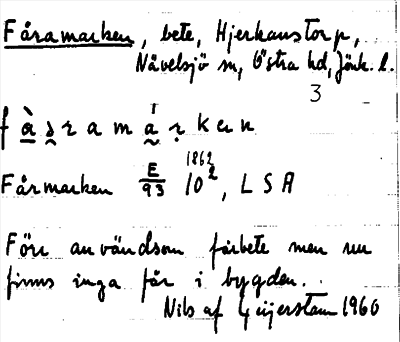 Fåramarken, bete, Hjerkanstorp,
Nävelsjö sn, Östra hd, Jönk. l.
3
f à ꝛ r a m á r k e n
1862
Fårmarken E/93 10², L S A
Förr användsom fårbete men nu
finns inga får i bygden.
Nils af Geijerstam 1960